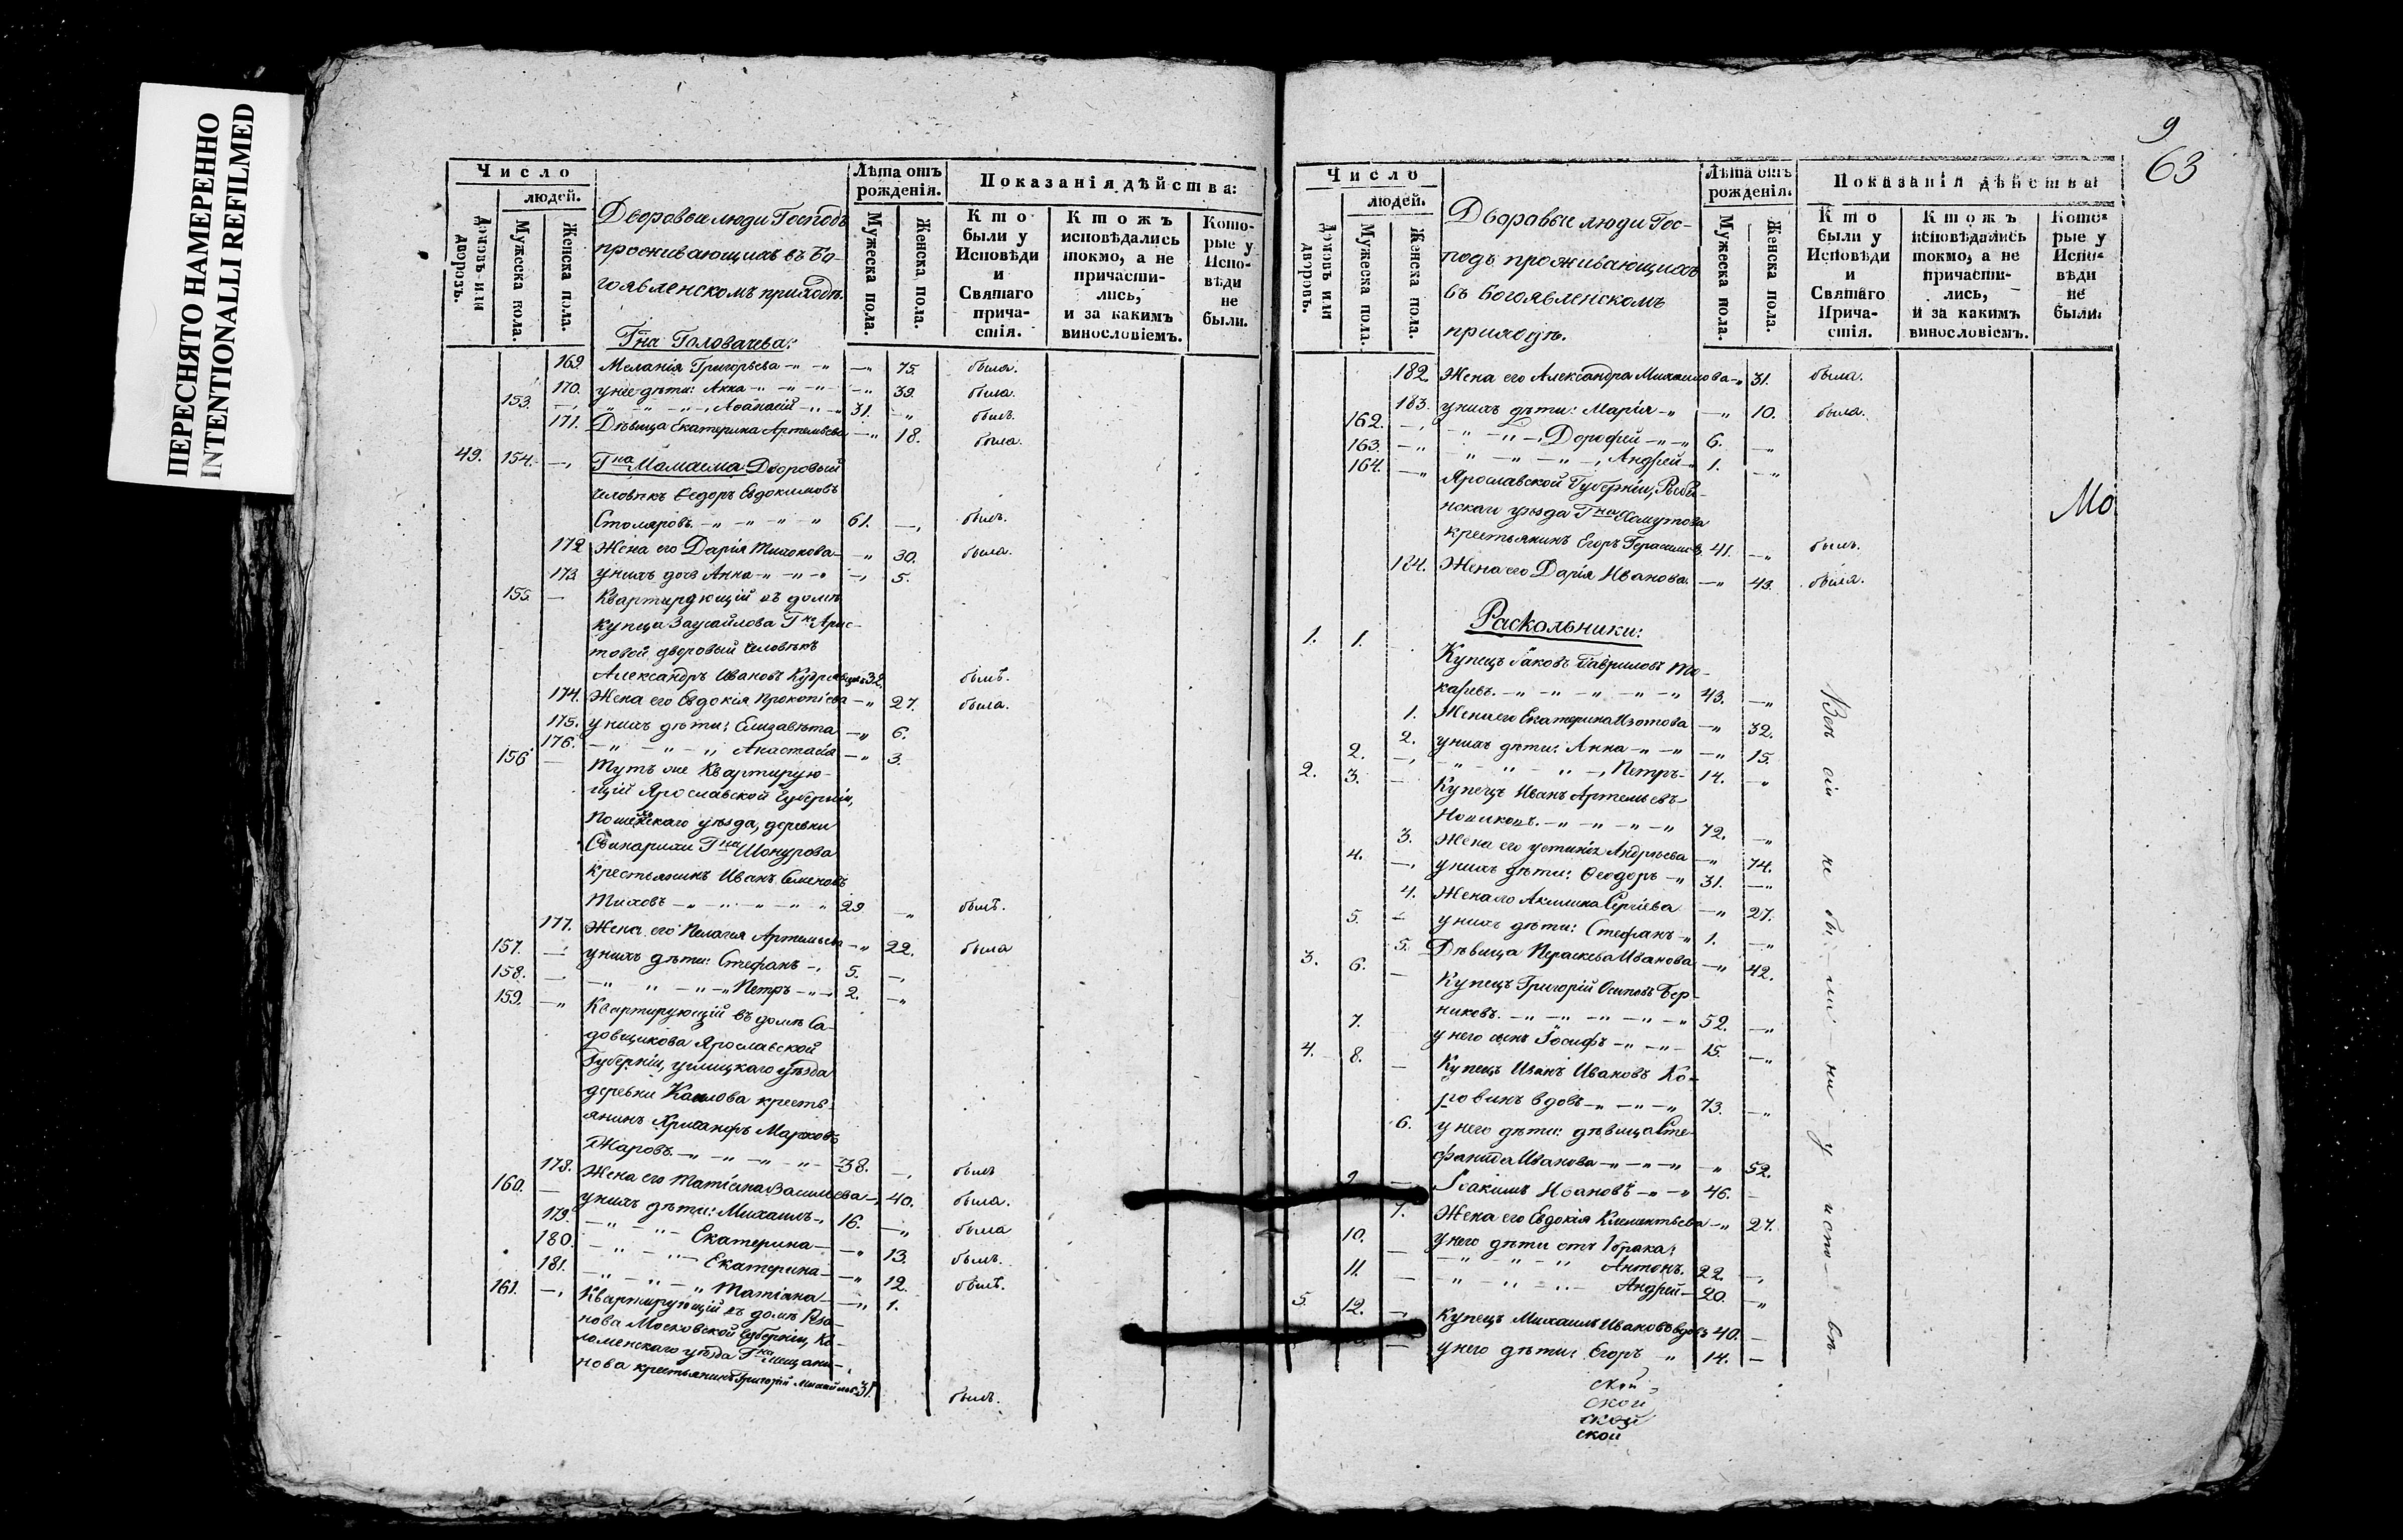 ПЕРЕСНЯТО НАМЕРЕННО
INTENTIONALLI REFILMED
Число
людей.
Домовъ или дворовъ.
Мужеска пола.
Женска пола.
Дворовые люди Господъ
проживающихъ въ Бо-
гоявленскомъ приходѣ.
Лѣта отъ рожденія.
Мужеска пола.
Женска пола.
Показанія дѣйства:
Кто были у Исповѣди и Святаго причастія.
Ктожъ исповѣдались токмо, а не причастились, и за какимъ винословіемъ.
Которые у Исповѣди не были.
Гна Головачева:
169. Меланія Григорьева 75. была.
170. у нее дѣти: Анна 39. была.
153. Аѳанасій 31. былъ.
171. Дѣвица Екатерина Артемьева 18. была.
49. 154. Гна Мамаема Дворовый
человѣкъ Ѳедоръ Евдокимовъ
Столяровъ 61. былъ.
172 Жена его Дарія Тихонова 30. была.
173 у нихъ дочь Анна 5.
155. Квартирующій въ домѣ
купца Заусайлова
товой дворовый человѣкъ
Александръ Ивановъ 32. былъ.
174. Жена его Евдокія Прокопіева 27. была.
175. у нихъ дѣти: Елизавѣта 6.
176. Анастасія 3.
156 Тутъ же Квартирую-
щій Ярославской Губерніи,
Пошехонскаго уѣзда, деревни
Свинарихи Гна Шонурова
крестьянинъ Иванъ Семеновъ
Тиховъ 29 былъ.
177. Жена его Пелагея Артемьева 22. была
157. у нихъ дѣти: Стефанъ 5.
158. Петръ 2.
159. Квартирующій въ домѣ Са-
довщикова Ярославской
Губерніи, углицкаго уѣзда
деревни крестъ-
янинъ Хрисанфъ Марковъ
Жаровъ 38. былъ
178. Жена его Татіана Васильева 40. была.
160. у нихъ дѣти: Михаилъ 16. была
179. Екатерина 13. былъ.
180. Екатерина 12. былъ.
181. Татіана 1.
161. Квартирующій въ домѣ Реза-
нова Московской Губерніи, Ко-
ломенскаго уѣзда Гна Мещани-
нова крестьянинъ Григорій 31. былъ.
9
63
Число
людей.
Домовъ или дворовъ.
Мужеска пола.
Женска пола.
Дворовые люди Гос-
подъ проживающихъ
въ Богоявленскомъ
приходѣ.
Лѣта отъ рожденія.
Мужеска пола.
Женска пола.
Показанія дѣйства:
Кто были у Исповѣди и Святаго Причастія.
Ктожъ исповѣдались токмо, а не причастились, и за какимъ винословіемъ.
Которые у Исповѣди не были.
182. Жена его Александра Михаилова 31. была.
183. у нихъ дѣти: Марія 10. была.
162. Дорофей 6.
163. Андрей 1.
164. Ярославской Губерніи, Рыби-
нскаго уѣзда Гна Хомутова
крестьянинъ Егоръ Герасимовъ 41. былъ.
184. Жена его Дарія Иванова 43. была.
Мо
Раскольники:
1. 1. Купецъ Іаковъ Гавриловъ То-
каревъ 43.
1. Жена его Екатерина Изотова 32.
2. у нихъ дѣти: Анна 15.
2. Петръ 14.
2. 3. Купецъ Иванъ Артемьевъ
72.
3. Жена его Андреева 74.
4. у нихъ дѣти: Ѳеодоръ 31.
4. Жена его Акилина Сергіева 27.
5. у нихъ дѣти: Стефанъ 1.
5. Дѣвица Параскева Иванова 42.
3. 6. Купецъ Григорій Осиповъ Бер-
никовъ 52.
7. у него сынъ Іосифъ 15.
4. 8. Купецъ Иванъ Ивановъ Ко-
ровинъ вдовъ 73.
6. у него дѣти: дѣвица Сте-
фанида Иванова 52.
9 Іоакимъ Ивановъ 46.
7. Жена его Евдокія Клементьева 27.
у него дѣти отъ 1 брака:
10. Антонъ 22.
11. Андрей 20.
5. 12. Купецъ Михаилъ Ивановъ вдовъ 40.
у него дѣти: Егоръ 14.
Всѣ сіи не были ни у испо-вѣ-
ской
ской
ской
ской